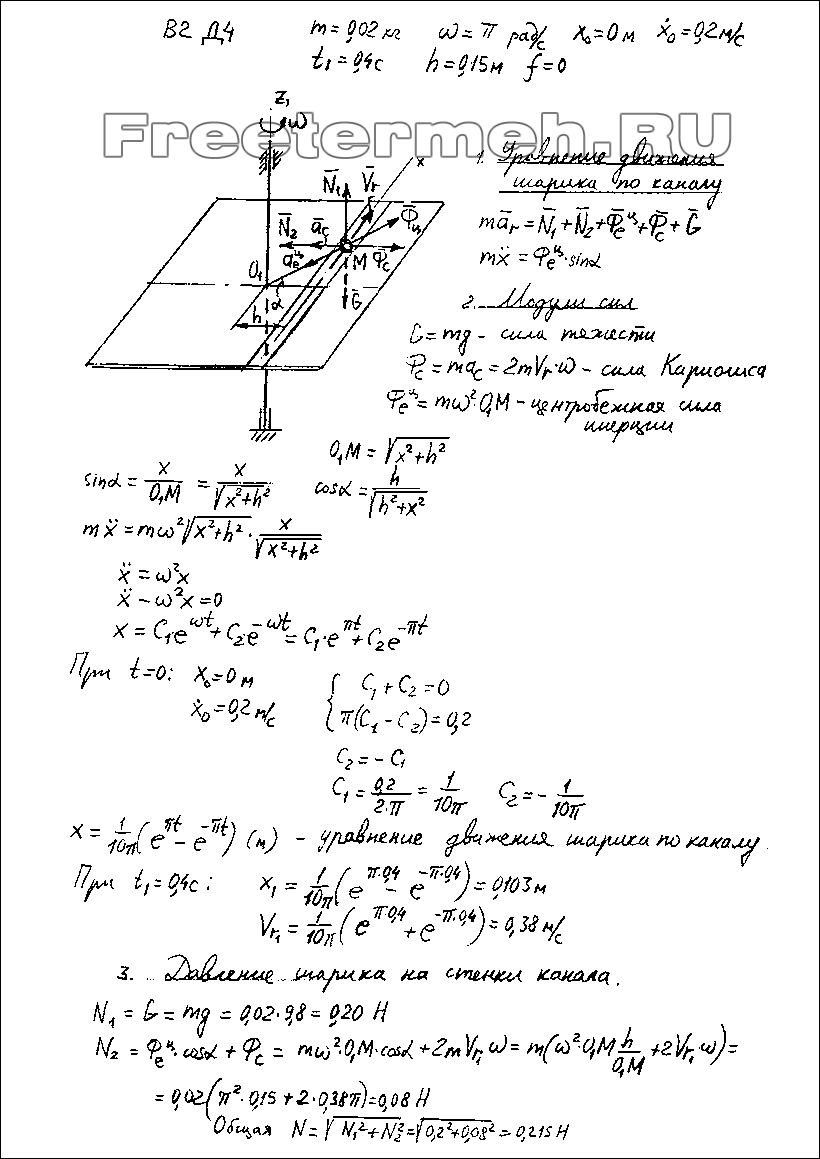 В2 Д4 m = 0,02 кг ω = π рад/с x₀ = 0 м ẋ₀ = 0,2 м/с
t₁ = 0,4 с h = 0,15 м f = 0
Freetermeh.RU
z₁
ω
N̄₁ V̄r x
N̄₂ āc Φ̄ц
āeц M Φ̄c
O₁
α Ḡ
h
1. Уравнение движения
шарика по каналу
mār = N̄₁ + N̄₂ + Φ̄eц + Φ̄c + Ḡ
mẍ = Φeц · sinα
2. Модули сил
G = mg - сила тяжести
Φc = mac = 2mVr·ω - сила Кариолиса
Φeц = mω²·O₁M - центробежная сила
инерции
O₁M = √(x² + h²)
sinα = x/O₁M = x/√(x² + h²) cosα = h/√(h² + x²)
mẍ = mω²√(x² + h²) · x/√(x² + h²)
ẍ = ω²x
ẍ - ω²x = 0
x = C₁e^ωt + C₂e^-ωt = C₁·e^πt + C₂e^-πt
При t = 0: x₀ = 0 м { C₁ + C₂ = 0
ẋ₀ = 0,2 м/с π(C₁ - C₂) = 0,2
C₂ = - C₁
C₁ = 0,2/2·π = 1/10π C₂ = - 1/10π
x = 1/10π (e^πt - e^-πt) (м) - уравнение движения шарика по каналу.
При t₁ = 0,4с: x₁ = 1/10π (e^π·0,4 - e^-π·0,4) = 0,103 м
Vr₁ = 1/10π (e^π·0,4 + e^-π·0,4) = 0,38 м/с
3. Давление шарика на стенки канала.
N₁ = G = mg = 0,02·9,8 = 0,20 Н
N₂ = Φeц·cosα + Φc = mω²·O₁M·cosα + 2mVr₁ω = m(ω²·O₁M h/O₁M + 2Vr₁·ω) =
= 0,02(π²·0,15 + 2·0,38π) = 0,08 Н
Общая N = √(N₁² + N₂²) = √(0,2² + 0,08²) = 0,215 Н